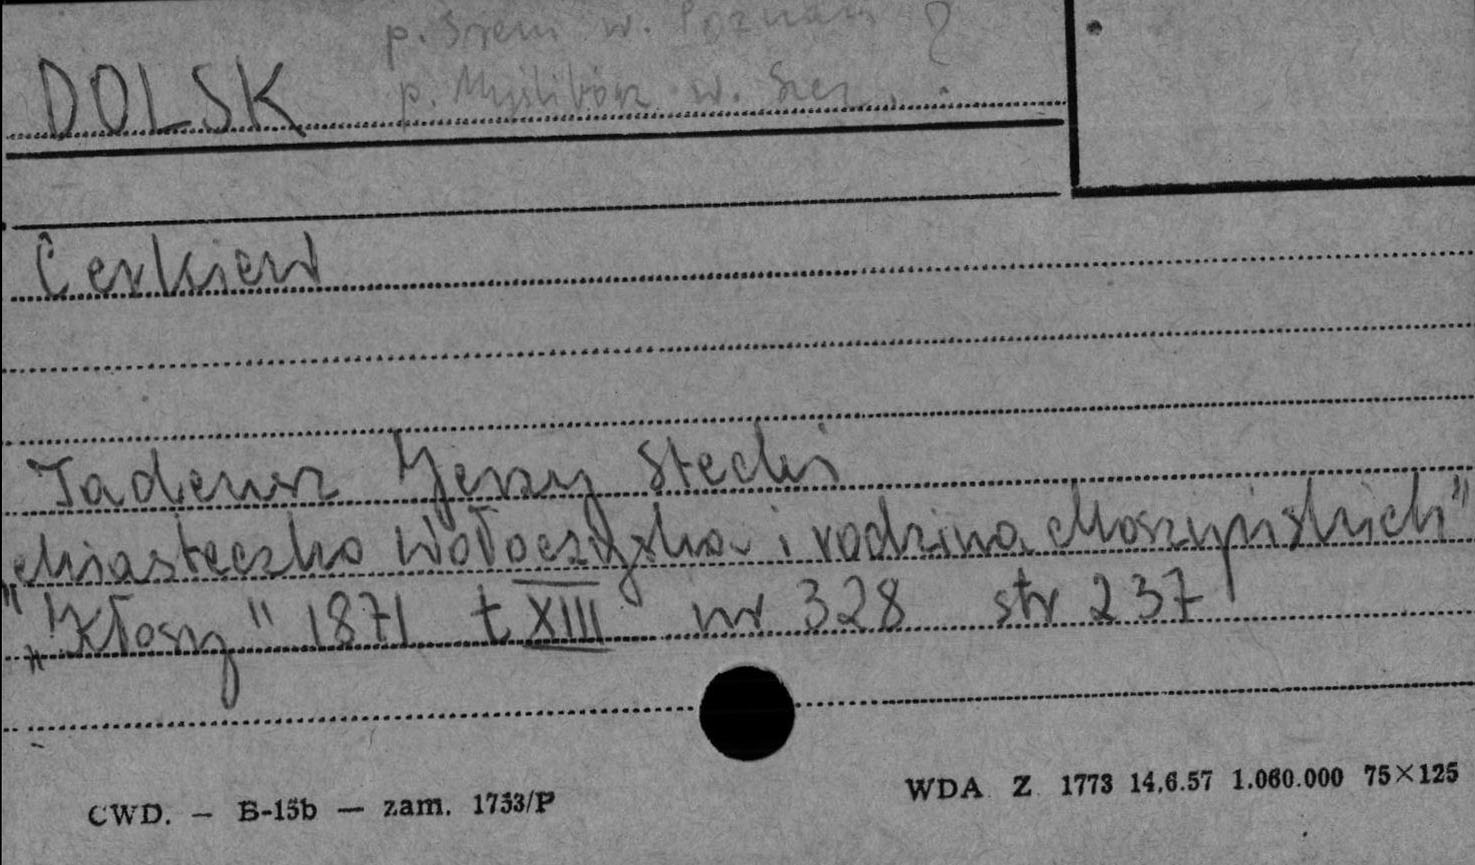 p. Śrem w. Poznań ?
DOLSK p. Myślibórz w. Szcz.
Cerkiew
Tadeusz Jerzy Stecki
„Miasteczko Wołoczyska i rodzina Moszyńskich"
„Kłosy" 1871 t XIII nr 328 str 237
CWD. — B-15b — zam. 1753/P
WDA Z 1773 14.6.57 1.060.000 75×125